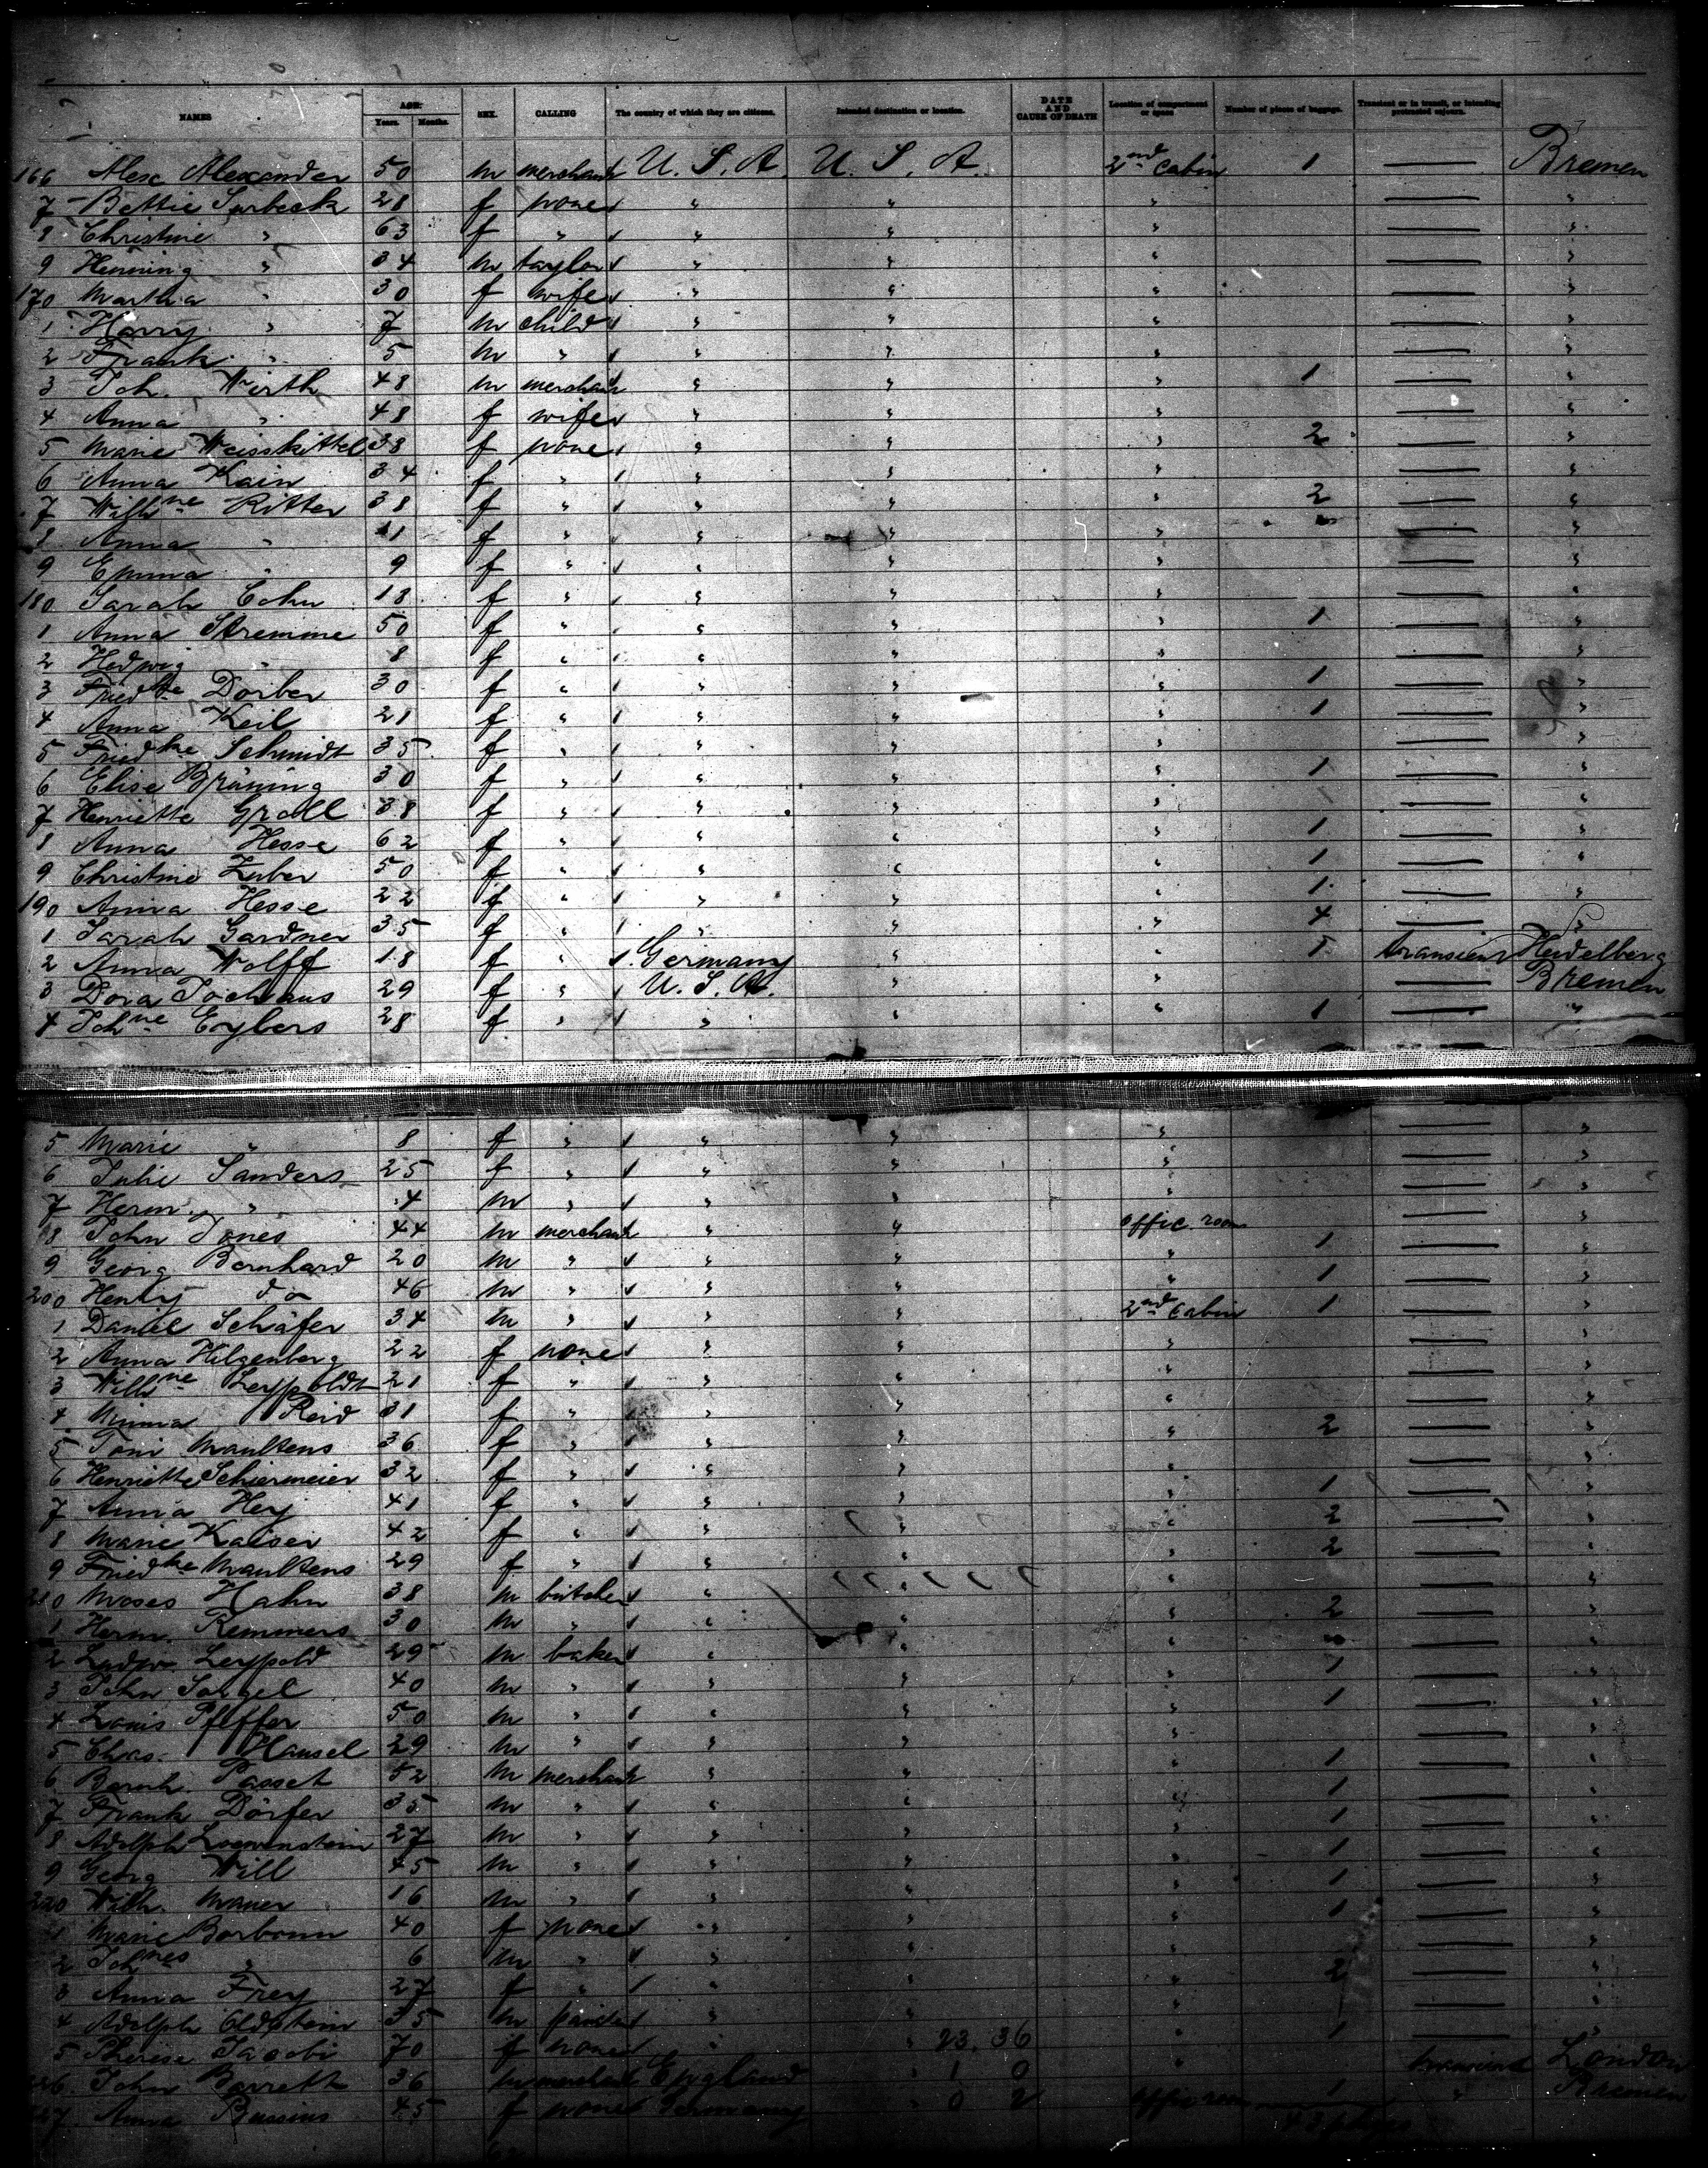 NAMES AGE. Years. Months. SEX. CALLING The country of which they are citizens. Intended destination or location. DATE AND CAUSE OF DEATH Location of compartment or space Number of pieces of baggage. Transient or in transit, or intending protracted sojourn.
166 Alex Alexander 50 m merchant U. S. A. U. S. A. 2nd Cabin 1 — Bremen
7 Bettie Surbeck 28 f none " " " — "
8 Christine " 63 f " " " " — "
9 Henning " 34 m taylor " " " — "
170 Martha " 30 f wife " " " — "
1 Harry " 7 m child " " " — "
2 Frank " 5 m " " " " — "
3 Joh. Wirth 48 m merchant " " " 1 — "
4 Anna " 48 f wife " " " — "
5 Marie Weisskittel 38 f none " " " 2 — "
6 Anna Kain 34 f " " " " — "
7 Wilhne Ritter 38 f " " " " 2 — "
8 Anna " 11 f " " " " — "
9 Emma " 9 f " " " " — "
180 Sarah Cohn 18 f " " " " — "
1 Anna Stremme 50 f " " " " 1 — "
2 Hedwig " 8 f " " " " — "
3 Friedke Dorber 30 f " " " " 1 — "
4 Anna Keil 21 f " " " " 1 — "
5 Friedke Schmidt 35 f " " " " — "
6 Elise Bräning 30 f " " " " 1 — "
7 Henriette Groll 38 f " " " " — "
8 Anna Hesse 62 f " " " " 1 — "
9 Christine Zuber 50 f " " " " 1 — "
190 Anna Hesse 22 f " " " " 1 — "
1 Sarah Gardner 35 f " " " " 4 — "
2 Anna Wolff 18 f " Germany " " transient Heidelberg
3 Dora 29 f " U. S. A. " " — Bremen
4 Johne Eybers 28 f " " " " 1 — "
5 Marie " 8 f " " " " — "
6 Julie Sanders 25 f " " " " — "
7 Herm. " 4 m " " " " — "
8 John Jones 44 m merchant " " offic. room — "
9 Georg Bernhard 20 m " " " " 1 — "
200 Henry do 46 m " " " " 1 — "
1 Daniel Schäfer 34 m " " " 2nd Cabin 1 — "
2 Anna Hilgenberg 22 f none " " " — "
3 Wilhne Leypoldt 21 f " " " " — "
4 Minna Reid 31 f " " " " — "
5 Toni Maultens 36 f " " " " 2 — "
6 Henriette Schiermeier 32 f " " " " — "
7 Anna Hey 41 f " " " " 1 — "
8 Marie Kaiser 42 f " " " " 2 — "
9 Friedke Maultens 29 f " " " " 2 — "
210 Moses Hahn 38 m butcher " " " — "
1 Herm. Remmers 30 m " " " " 2 — "
2 Ludw. Leypold 29 m baker " " " — "
3 John Sorgel 40 m " " " " 1 — "
4 Louis Pfeffer 50 m " " " " 1 — "
5 Chas. Hansel 29 m " " " " — "
6 Bernh. Passet 52 m merchant " " " 1 — "
7 Frank Dörfer 35 m " " " " 1 — "
8 Adolph Loewenstein 27 m " " " " 1 — "
9 Georg Will 45 m " " " " 1 — "
220 Wilh. Mauer 16 m " " " " 1 — "
1 Marie Borbonn 40 f none " " " 1 — "
2 Johnes " 6 m " " " " — "
3 Anna Frey 27 f " " " " 2 — "
4 Adolph 35 m " " " — "
5 Therese Jacobi 70 f none " " 23. 36 " 1 — "
226. John Barrett 36 m merchant England " 1 0 " transient London
227. Anna Bussius 45 f none Germany " 0 2 offic. room 1 " Bremen